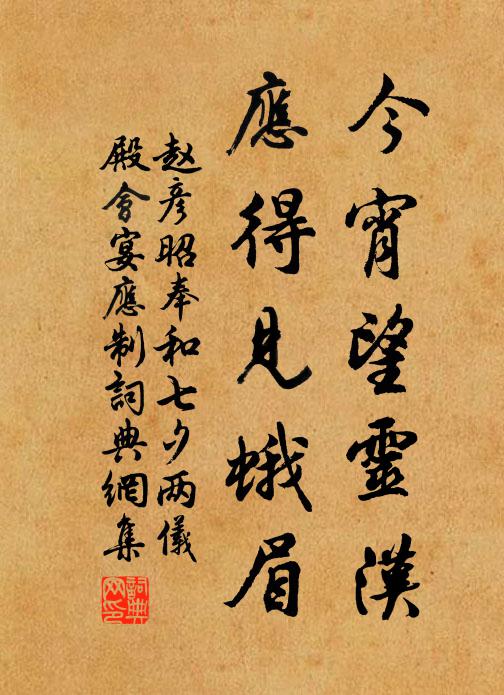 今宵望靈漢
應得見蛾眉
赵彦昭奉和七夕两儀
殿會宴應制詞典網集
詞典
网印